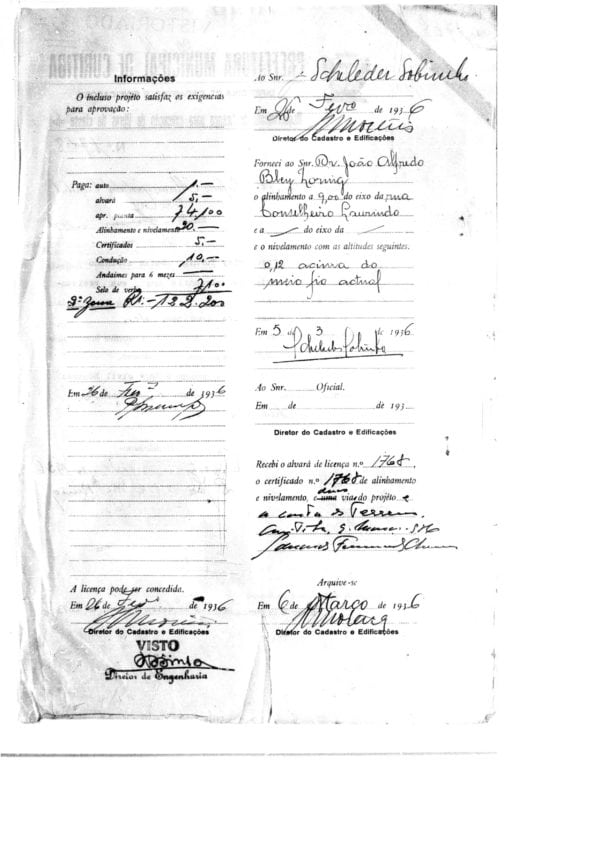 PREFEITURA MUNICIPAL DE CURITIBA
Informações
O incluso projeto satisfaz os exigencias
para aprovação:
Paga: auto 1.—
alvará 5.—
apr. planta 74,100
Alinhamento e nivelamento 20.—
Certificados 5.—
Condução 10,—
Andaimes para 6 mezes
Selo de verba 7,100
Rs.— 122.200
Em 26 de Fevº de 1936
A licença pode ser concedida.
Em 26 de Fev de 1936
Diretor do Cadastro e Edificações
VISTO
Diretor de Engenharia
Ao Snr. Schleder Sobinho
Em 26 de Fevº de 1936
Diretor do Cadastro e Edificações
Forneci ao Snr. Dr. João Alfredo
Bley Zornig
o alinhamento a 9,00 do eixo da rua
Conselheiro Laurindo
e a do eixo da
e o nivelamento com as altitudes seguintes.
0,12 acima do
meio fio actual
Em 5 de 3 de 1936
Schleder Sobinho
Ao Snr. Oficial.
Em de de 193
Diretor do Cadastro e Edificações
Recebi o alvará de licença n.º 1768,
o certificado n.º 1768 de alinhamento
e nivelamento, e uma duas via do projeto e
a carta de Terreno
Arquive-se
Em 6 de Março de 1936
Diretor do Cadastro e Edificações